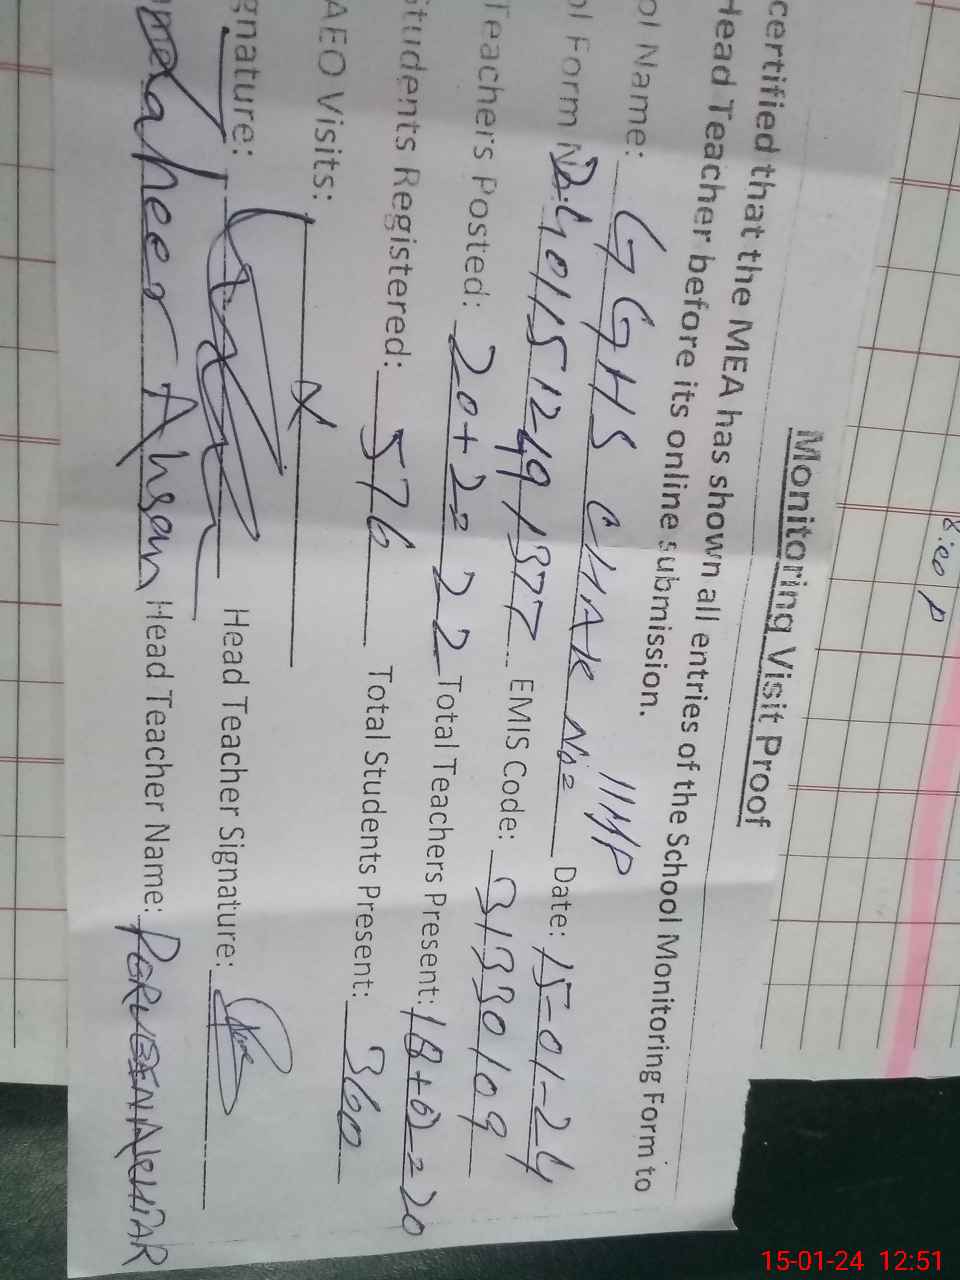 Monitoring Visit Proof
certified that the MEA has shown all entries of the School Monitoring Form to
Head Teacher before its online submission.
ol Name: GGHS CHAK No= 11MP Date: 15-01-24
ol Form 401151249137 EMIS Code: 31330109
Teachers Posted: 20+2= 22 Total Teachers Present: 18+02=20
Students Registered: 576 Total Students Present: 360
AEO Visits: X
gnature: Head Teacher Signature:
Zaheer Ahsan Head Teacher Name: PERVEEN AKHTAR
8:00
15-01-24 12:51